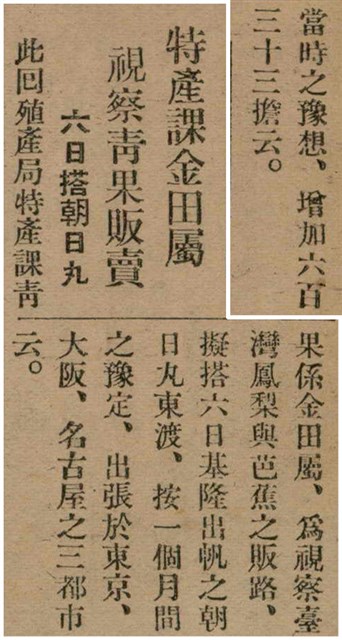 當時之豫想、增加六百
三十三擔云。
特產課金田屬
視察靑果販賣
六日搭朝日丸
此回殖產局特產課靑
果係金田屬、爲視察臺
灣鳳梨與芭蕉之販路、
擬搭六日基隆出帆之朝
日丸東渡、按一個月間
之豫定、出張於東京、
大阪、名古屋之三都市
云。